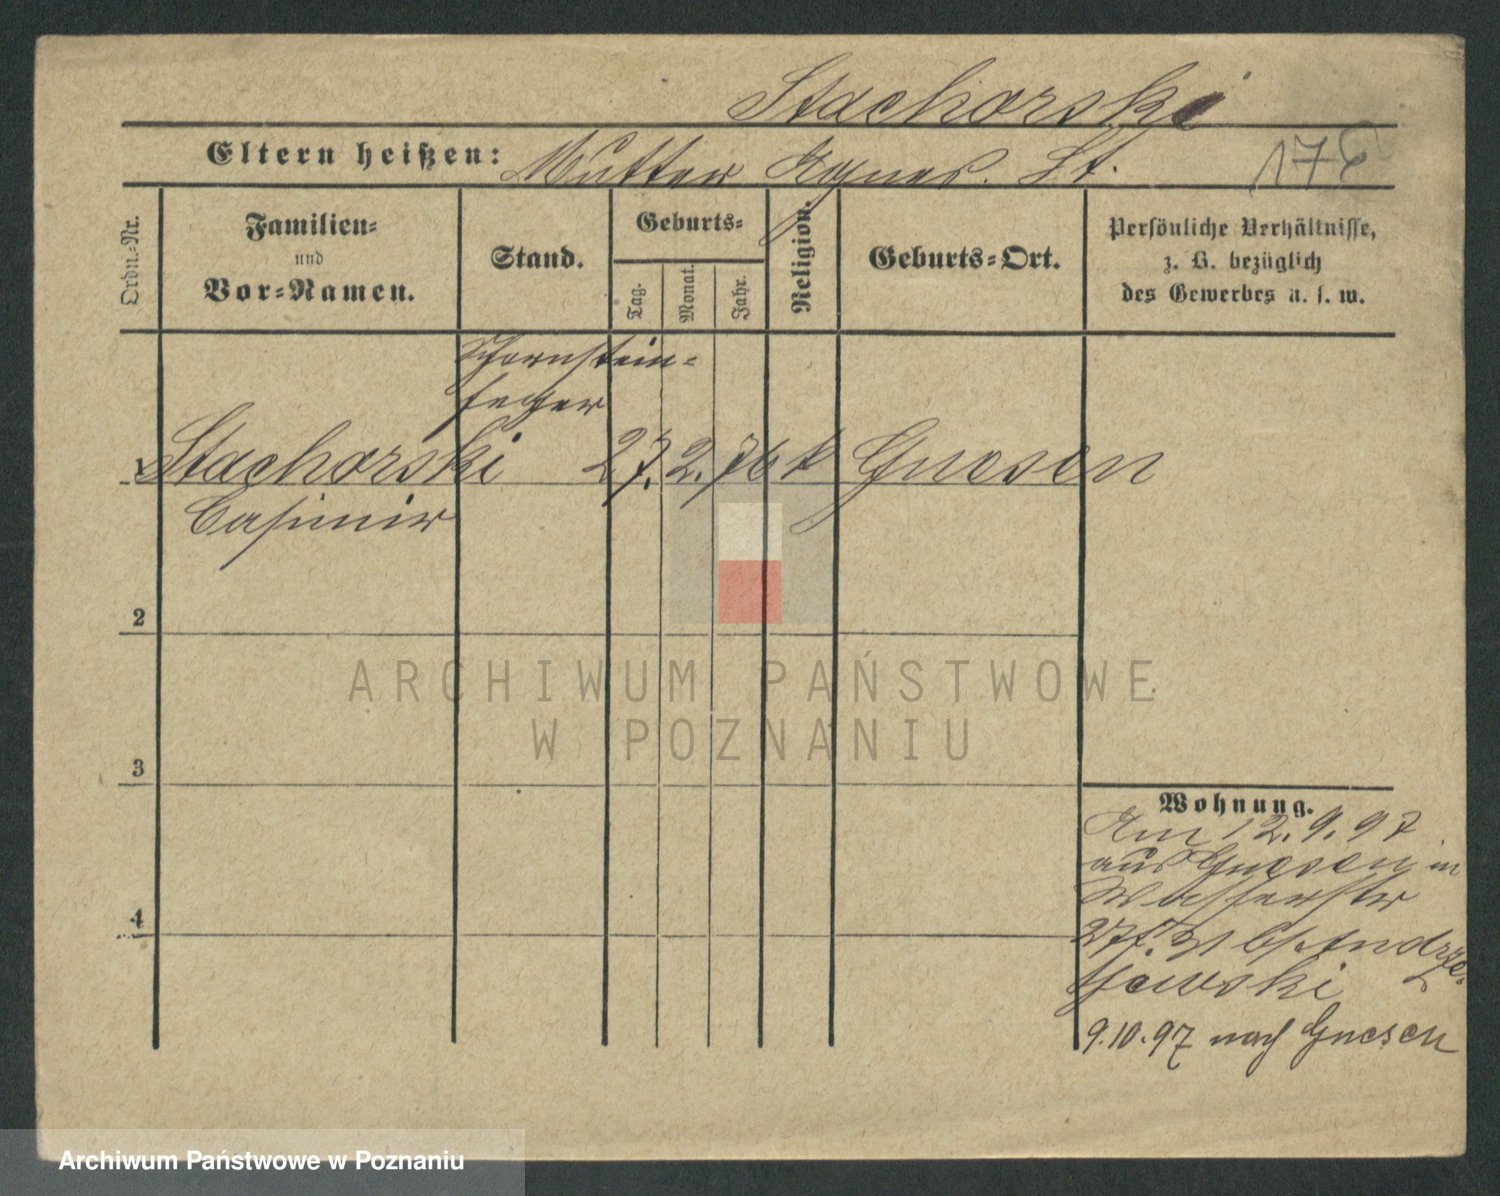 Stachorski
Eltern heißen: Mutter Agnes. St.
176
Ordn.-Nr.
Familien-
und
Vor-Namen.
Stand.
Geburts-
Tag.
Monat.
Jahr.
Religion.
Geburts-Ort.
Persönliche Verhältnisse,
z. B. bezüglich
des Gewerbes u. s. w.
Schornstein-
feger
1 Stachorski 27. 2. 76 k Gnesen
Casimir
2
3
4
Wohnung.
Am 12.9.97
aus Gnesen in
Wasserstr
27 b. Andrze-
jewski
9.10.97 nach Gnesen
ARCHIWUM PAŃSTWOWE
W POZNANIU
Archiwum Państwowe w Poznaniu